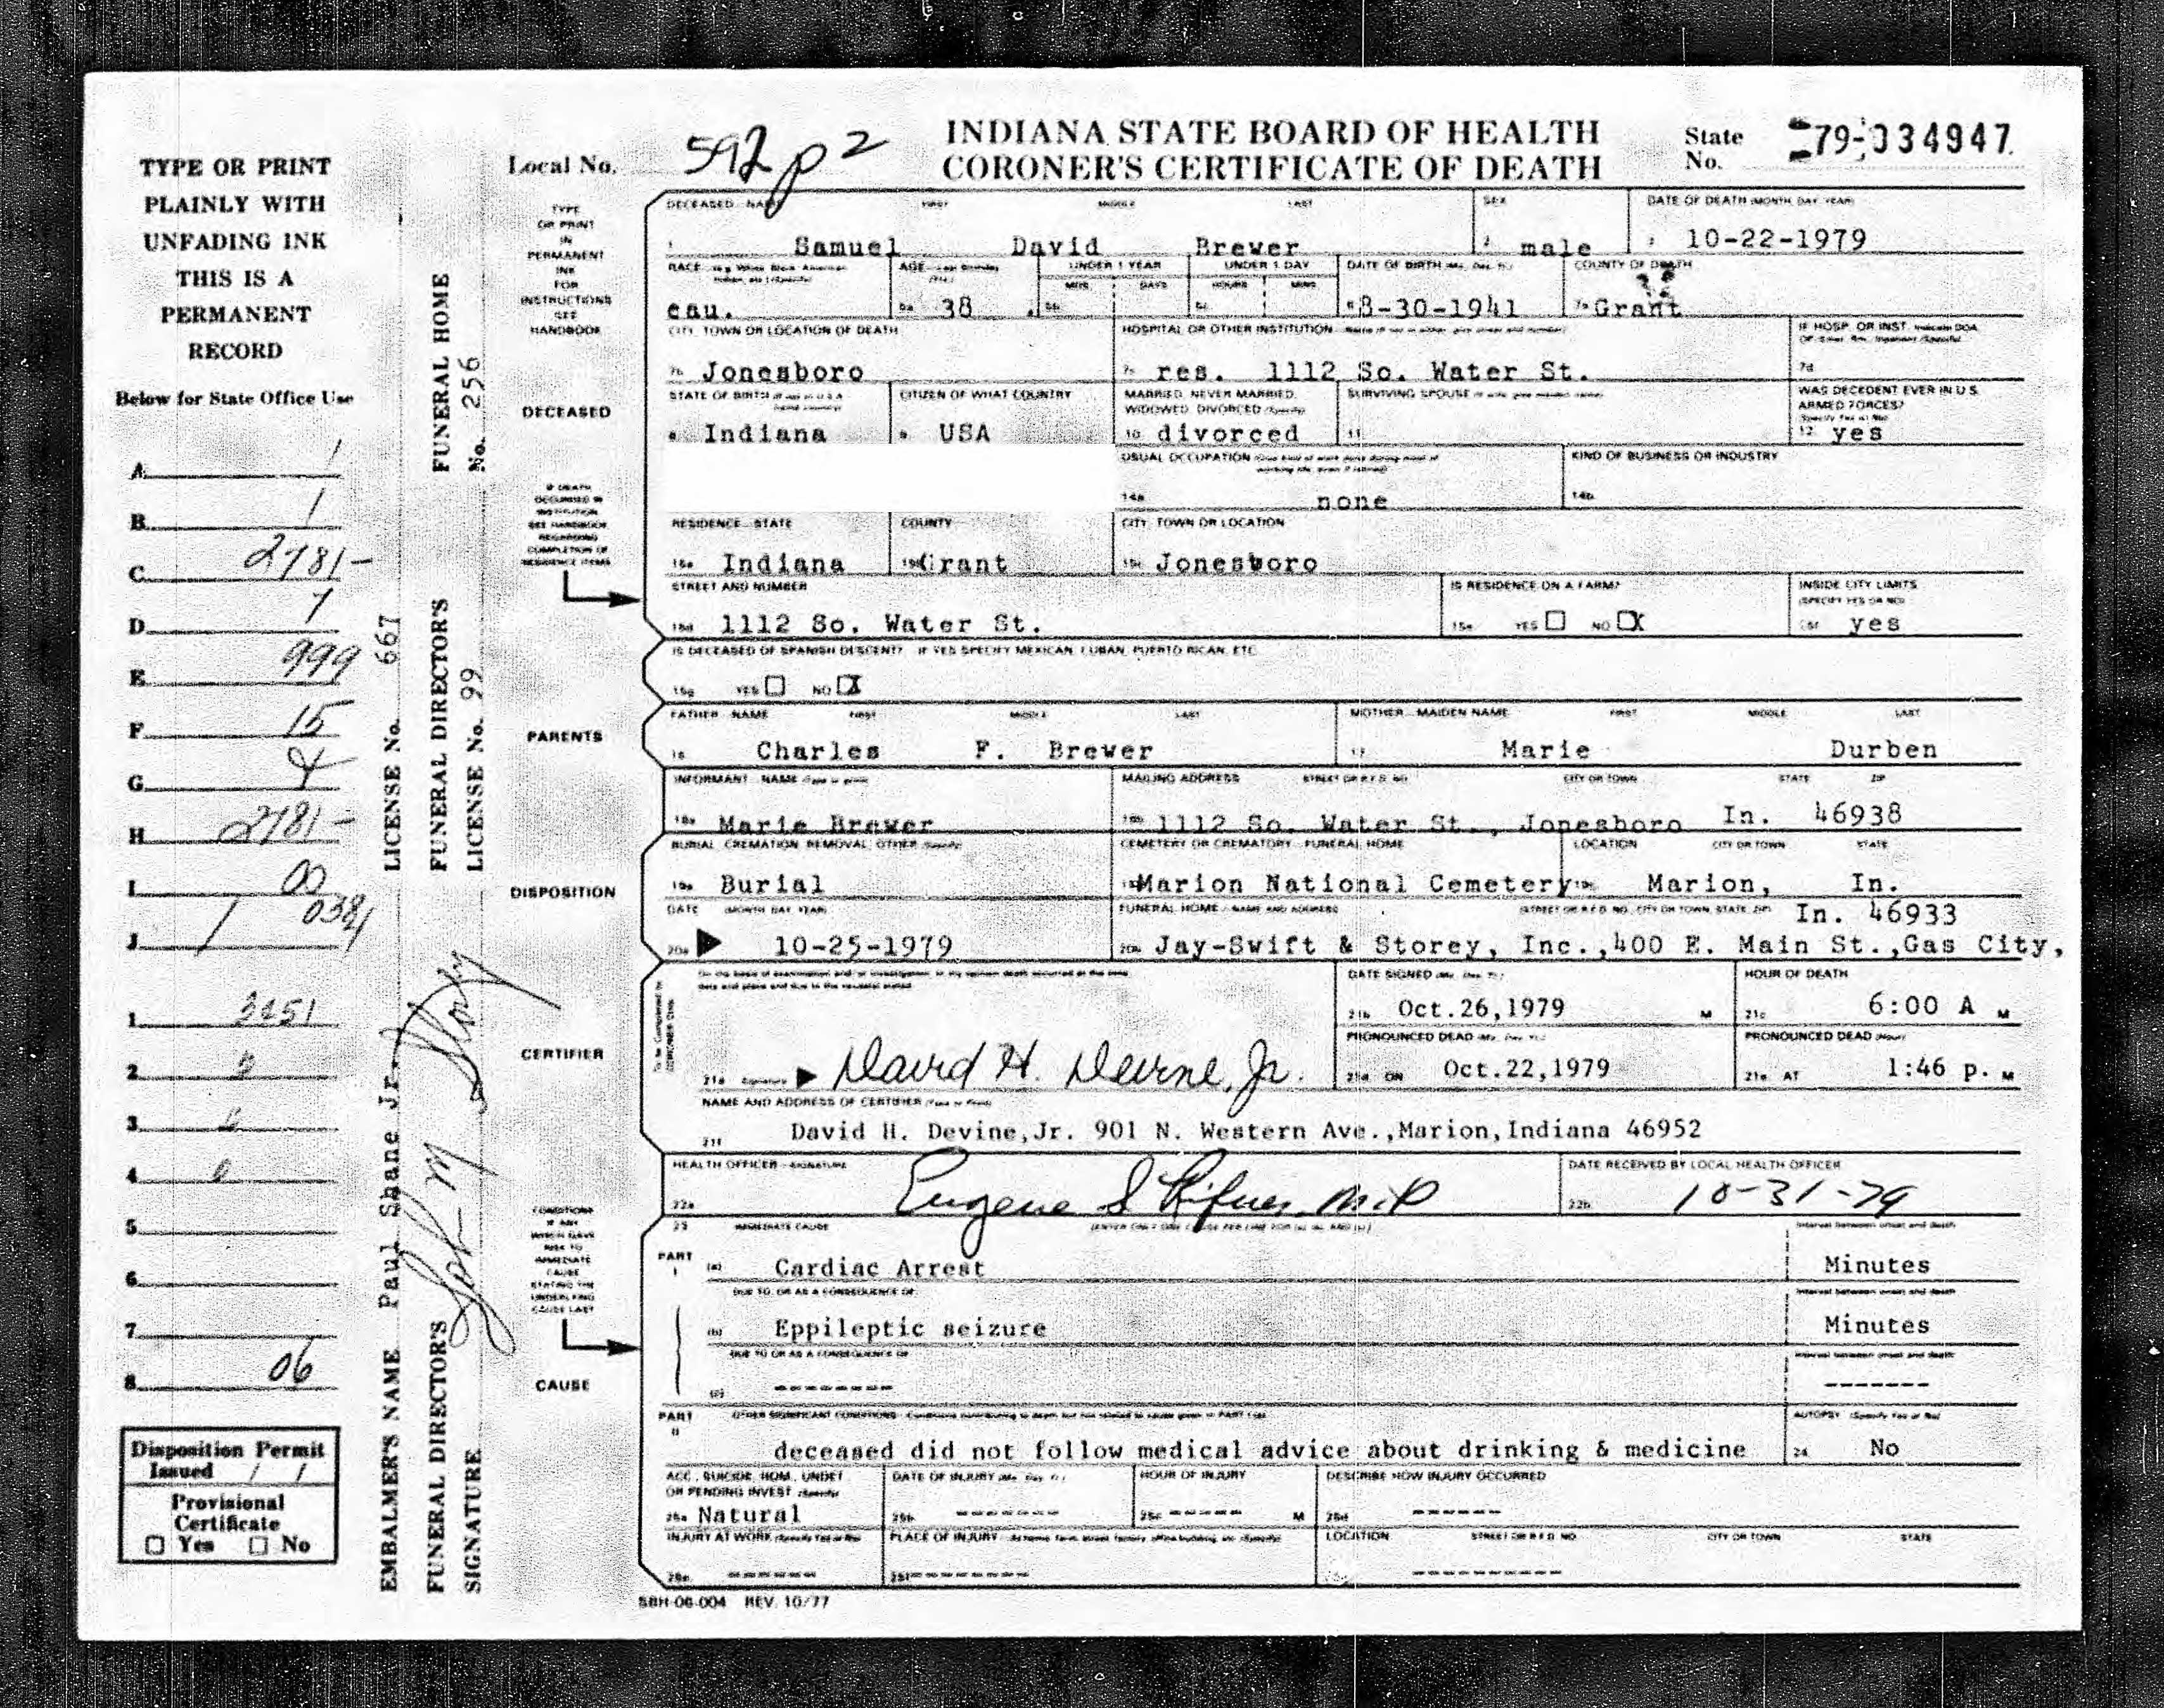 INDIANA STATE BOARD OF HEALTH
CORONER'S CERTIFICATE OF DEATH
Local No. 592 p2
State No. 79-034947
TYPE OR PRINT
PLAINLY WITH
UNFADING INK
THIS IS A
PERMANENT
RECORD
Below for State Office Use
A. 1
B. 1
C. 2781-
D. 7
E. 999
F. 15
G. 4
H. 2781-
I. 00
J. 1 0381
1. 3451
2.
3.
4. 0
5.
6.
7.
8. 06
Disposition Permit
Issued / /
Provisional
Certificate
Yes No
EMBALMER'S NAME Paul Shane Jr. LICENSE No. 667
FUNERAL DIRECTOR'S
SIGNATURE
FUNERAL DIRECTOR'S
LICENSE No. 99
FUNERAL HOME
No. 256
TYPE
OR PRINT
IN
PERMANENT
INK
FOR
INSTRUCTIONS
SEE
HANDBOOK
DECEASED
IF DEATH
OCCURRED IN
INSTITUTION
SEE HANDBOOK
REGARDING
COMPLETION OF
RESIDENCE ITEMS
PARENTS
DISPOSITION
CERTIFIER
CONDITIONS
IF ANY
WHICH GAVE
RISE TO
IMMEDIATE
CAUSE
STATING THE
UNDERLYING
CAUSE LAST
CAUSE
DECEASED NAME FIRST MIDDLE LAST SEX DATE OF DEATH (MONTH, DAY, YEAR)
1 Samuel David Brewer 2 male 3 10-22-1979
RACE AGE UNDER 1 YEAR UNDER 1 DAY DATE OF BIRTH COUNTY OF DEATH
MOS. DAYS HOURS MINS
cau. 5a 38 5b 5c 8-30-1941 7a Grant
CITY, TOWN OR LOCATION OF DEATH HOSPITAL OR OTHER INSTITUTION IF HOSP. OR INST.
7b Jonesboro 7c res. 1112 So. Water St. 7d
STATE OF BIRTH CITIZEN OF WHAT COUNTRY MARRIED, NEVER MARRIED, WIDOWED, DIVORCED SURVIVING SPOUSE WAS DECEDENT EVER IN U.S. ARMED FORCES?
8 Indiana 9 USA 10 divorced 11 12 yes
USUAL OCCUPATION KIND OF BUSINESS OR INDUSTRY
14a none 14b
RESIDENCE STATE COUNTY CITY, TOWN OR LOCATION
15a Indiana 15b Grant 15c Jonesboro
STREET AND NUMBER IS RESIDENCE ON A FARM? INSIDE CITY LIMITS (SPECIFY YES OR NO)
15d 1112 So. Water St. 15e YES NO X 15f yes
IS DECEASED OF SPANISH DESCENT? IF YES SPECIFY MEXICAN, CUBAN, PUERTO RICAN, ETC
15g YES NO X
FATHER NAME FIRST MIDDLE LAST MOTHER MAIDEN NAME FIRST MIDDLE LAST
16 Charles F. Brewer 17 Marie Durben
INFORMANT NAME MAILING ADDRESS STREET OR R.F.D. NO. CITY OR TOWN STATE ZIP
18a Marie Brewer 18b 1112 So. Water St., Jonesboro In. 46938
BURIAL, CREMATION, REMOVAL, OTHER CEMETERY OR CREMATORY FUNERAL HOME LOCATION CITY OR TOWN STATE
19a Burial 19b Marion National Cemetery 19c Marion, In.
DATE (MONTH, DAY, YEAR) FUNERAL HOME NAME AND ADDRESS (STREET OR R.F.D. NO., CITY OR TOWN, STATE, ZIP) In. 46933
20a 10-25-1979 20b Jay-Swift & Storey, Inc.,400 E. Main St.,Gas City,
DATE SIGNED HOUR OF DEATH
21b Oct.26,1979 M 21c 6:00 A M
PRONOUNCED DEAD PRONOUNCED DEAD
21a David H. Devine, Jr. 21d ON Oct.22,1979 21e AT 1:46 p. M
NAME AND ADDRESS OF CERTIFIER
21f David H. Devine,Jr. 901 N. Western Ave.,Marion,Indiana 46952
HEALTH OFFICER SIGNATURE DATE RECEIVED BY LOCAL HEALTH OFFICER
22a Eugene S Rifner M.D 22b 10-31-79
23 IMMEDIATE CAUSE (ENTER ONLY ONE CAUSE PER LINE FOR (a), (b), AND (c)) Interval between onset and death
PART I (a) Cardiac Arrest Minutes
DUE TO, OR AS A CONSEQUENCE OF Interval between onset and death
(b) Eppileptic seizure Minutes
DUE TO OR AS A CONSEQUENCE OF Interval between onset and death
(c) -------- -------
PART II OTHER SIGNIFICANT CONDITIONS Conditions contributing to death but not related to cause given in PART I (a) AUTOPSY (Specify Yes or No)
deceased did not follow medical advice about drinking & medicine 24 No
ACC., SUICIDE, HOM., UNDET OR PENDING INVEST DATE OF INJURY HOUR OF INJURY DESCRIBE HOW INJURY OCCURRED
25a Natural 25b ------- 25c ------ M 25d ------
INJURY AT WORK PLACE OF INJURY LOCATION STREET OR R.F.D. NO. CITY OR TOWN STATE
25e ------ 25f --------- ----------
SBH-06-004 REV. 10/77